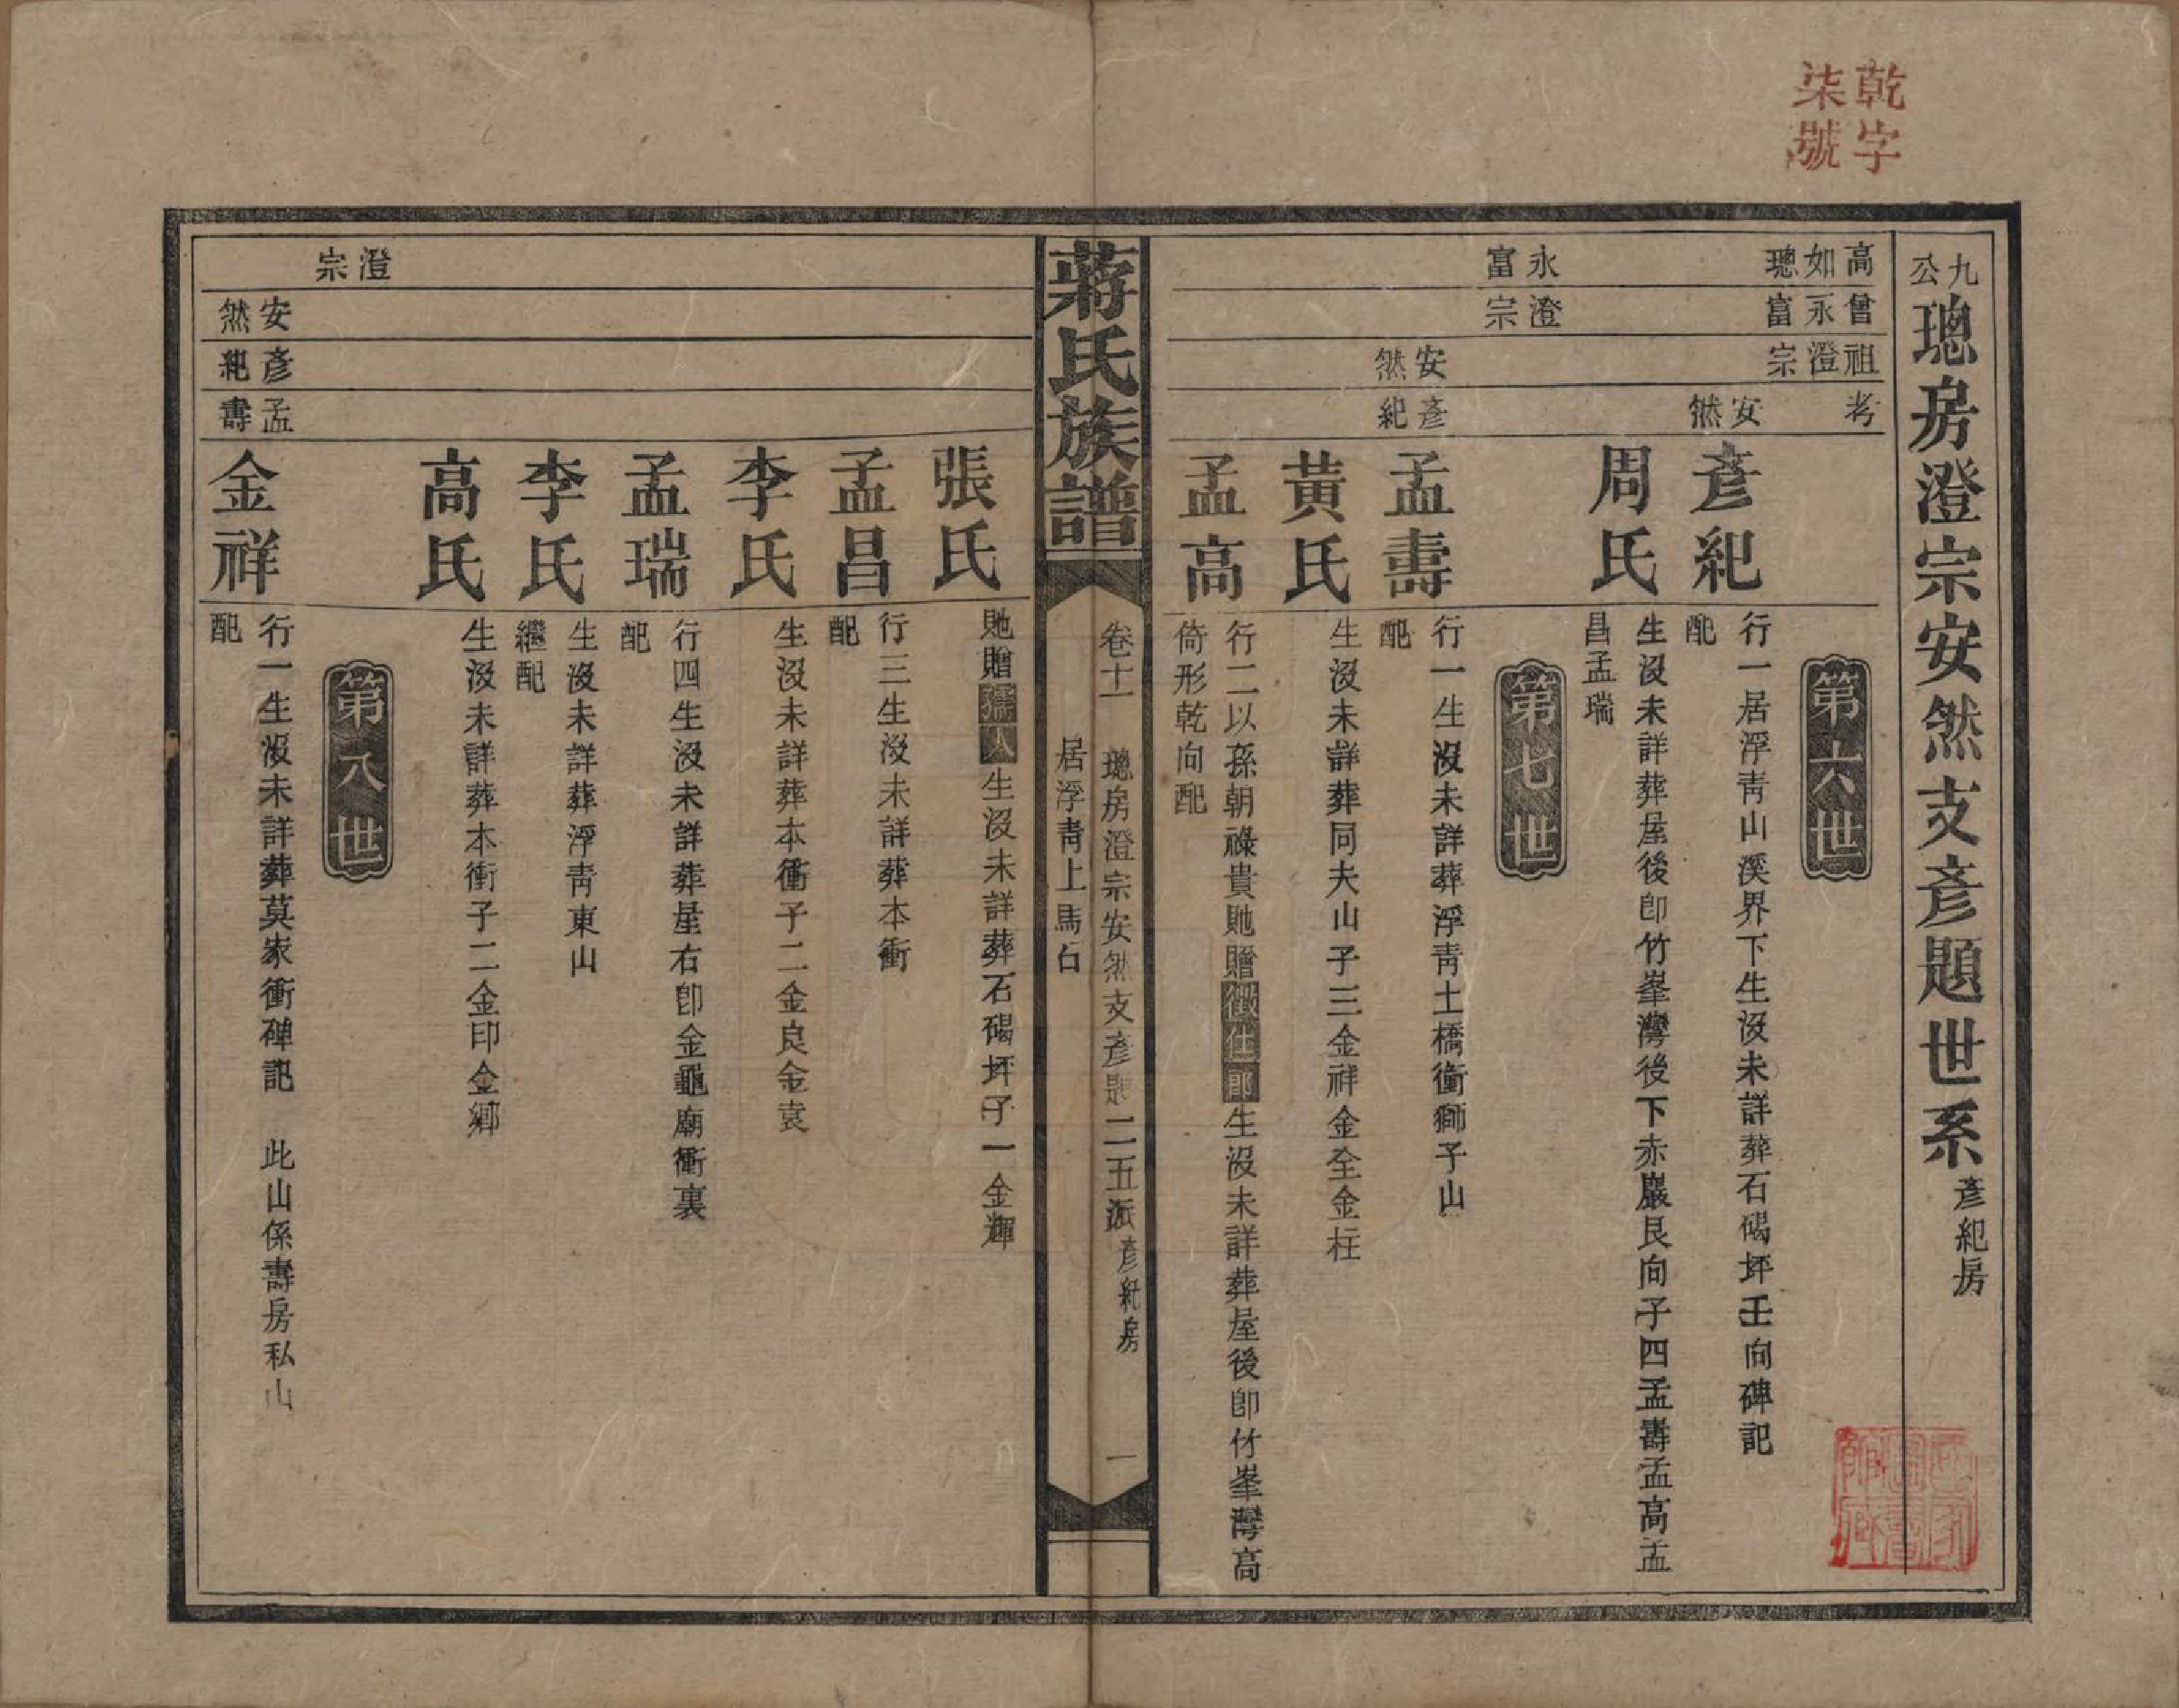 乾字
柒號
九公璁房澄宗安然支彥題世系彥紀房
高曾祖考
如璁 永富 澄宗 安然
第六世
彥紀
行一居浮靑山溪界下生沒未詳葬石碣坪壬向碑記
配
周氏
生沒未詳葬屋後卽竹峯灣後下赤巖艮向子四孟壽孟高孟
昌孟瑞
第七世
永富 澄宗 安然 彥紀
孟壽
行一生沒未詳葬浮靑土橋衝獅子山
配
黃氏
生沒未詳葬同夫山子三金祥金全金柱
孟高
行二以孫朝祿貴貤贈徵仕郎生沒未詳葬屋後卽竹峯灣高
倚形乾向配
蔣氏族譜
卷十一 璁房澄宗安然支彥題二五派彥紀房
居浮靑上馬石
一
張氏
貤贈孺人生沒未詳葬石碣坪子一金輝
孟昌
行三生沒未詳葬本衝
配
李氏
生沒未詳葬本衝子二金良金袁
孟瑞
行四生沒未詳葬星右卽金龜廟衝裏
配
李氏
生沒未詳葬浮靑東山
繼配
高氏
生沒未詳葬本衝子二金印金鄉
第八世
澄宗 安然 彥紀 孟壽
金祥
行一生沒未詳葬莫家衝碑記 此山係壽房私山
配